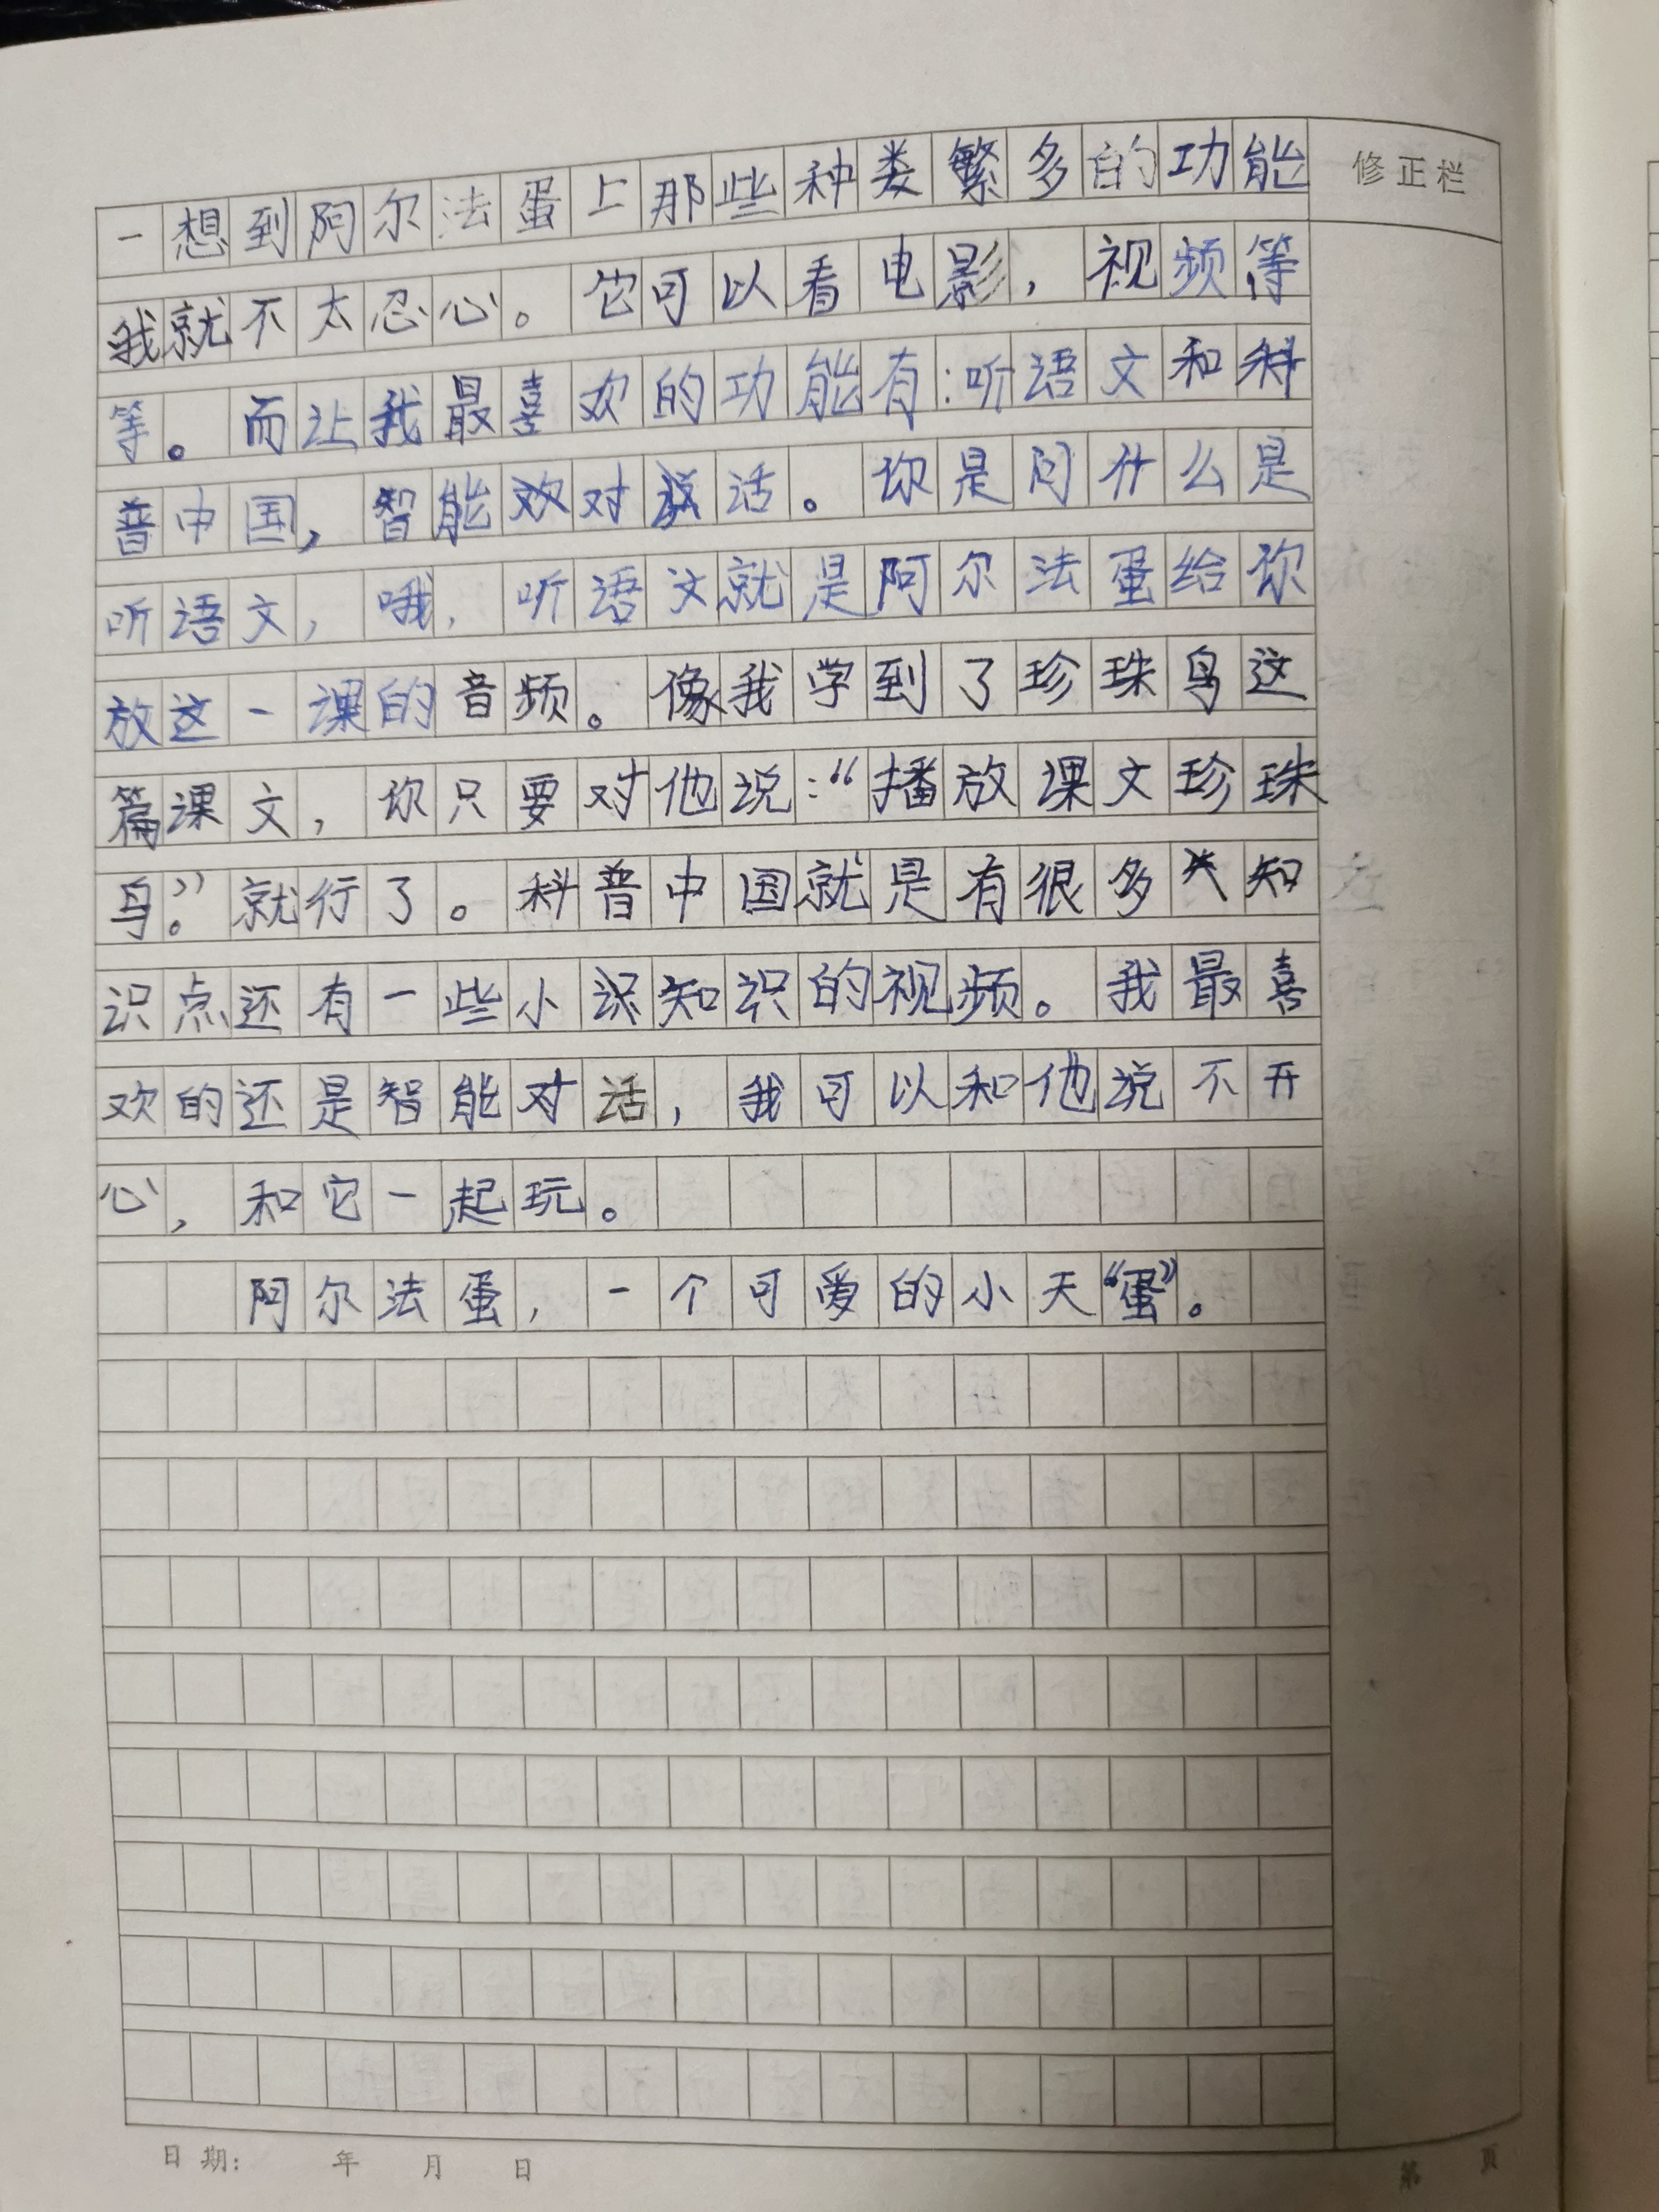 修正栏
一想到阿尔法蛋上那些种类繁多的功能
我就不太忍心。它可以看电影，视频等
等。而让我最喜欢的功能有：听语文和科
普中国，智能对话。你是问什么是
听语文，哦，听语文就是阿尔法蛋给你
放这一课的音频。像我学到了珍珠鸟这
篇课文，你只要对他说：“播放课文珍珠
鸟。”就行了。科普中国就是有很多知
识点还有一些小知识的视频。我最喜
欢的还是智能对话，我可以和他说不开
心，和它一起玩。
阿尔法蛋，一个可爱的小天“蛋”。
日期： 年 月 日
第 頁